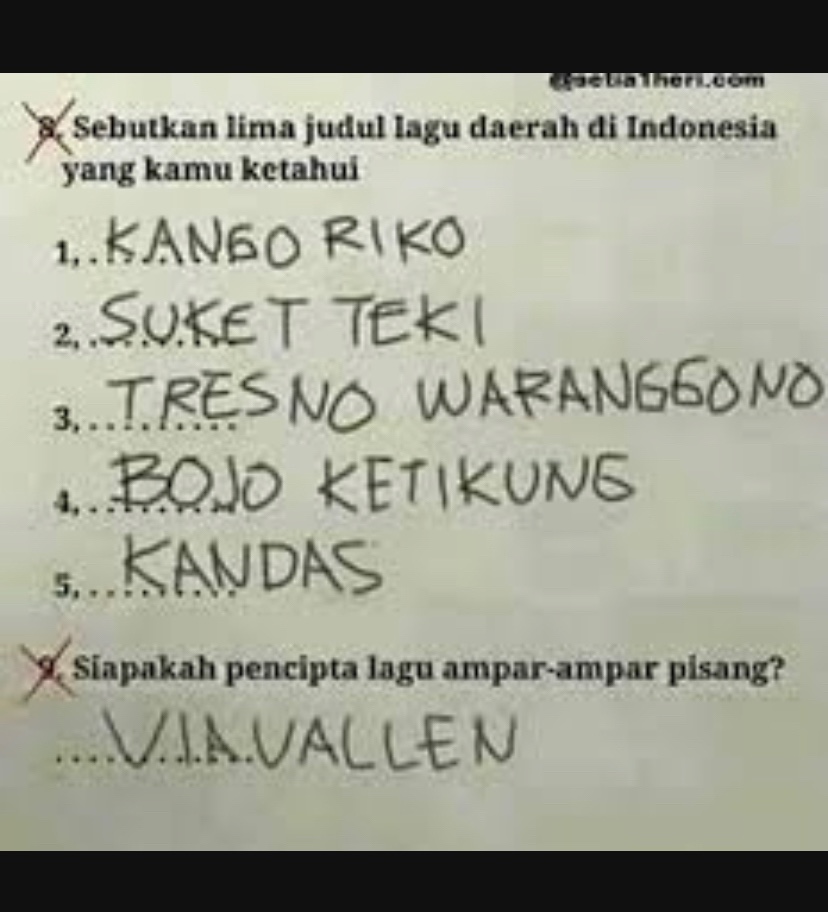 @setia1heri.com
8. Sebutkan lima judul lagu daerah di Indonesia
yang kamu ketahui
1,..KANGO RIKO
2,..SUKET TEKI
3,..TRESNO WARANGGONO
4,..BOJO KETIKUNG
5,..KANDAS
9. Siapakah pencipta lagu ampar-ampar pisang?
....VIA VALLEN